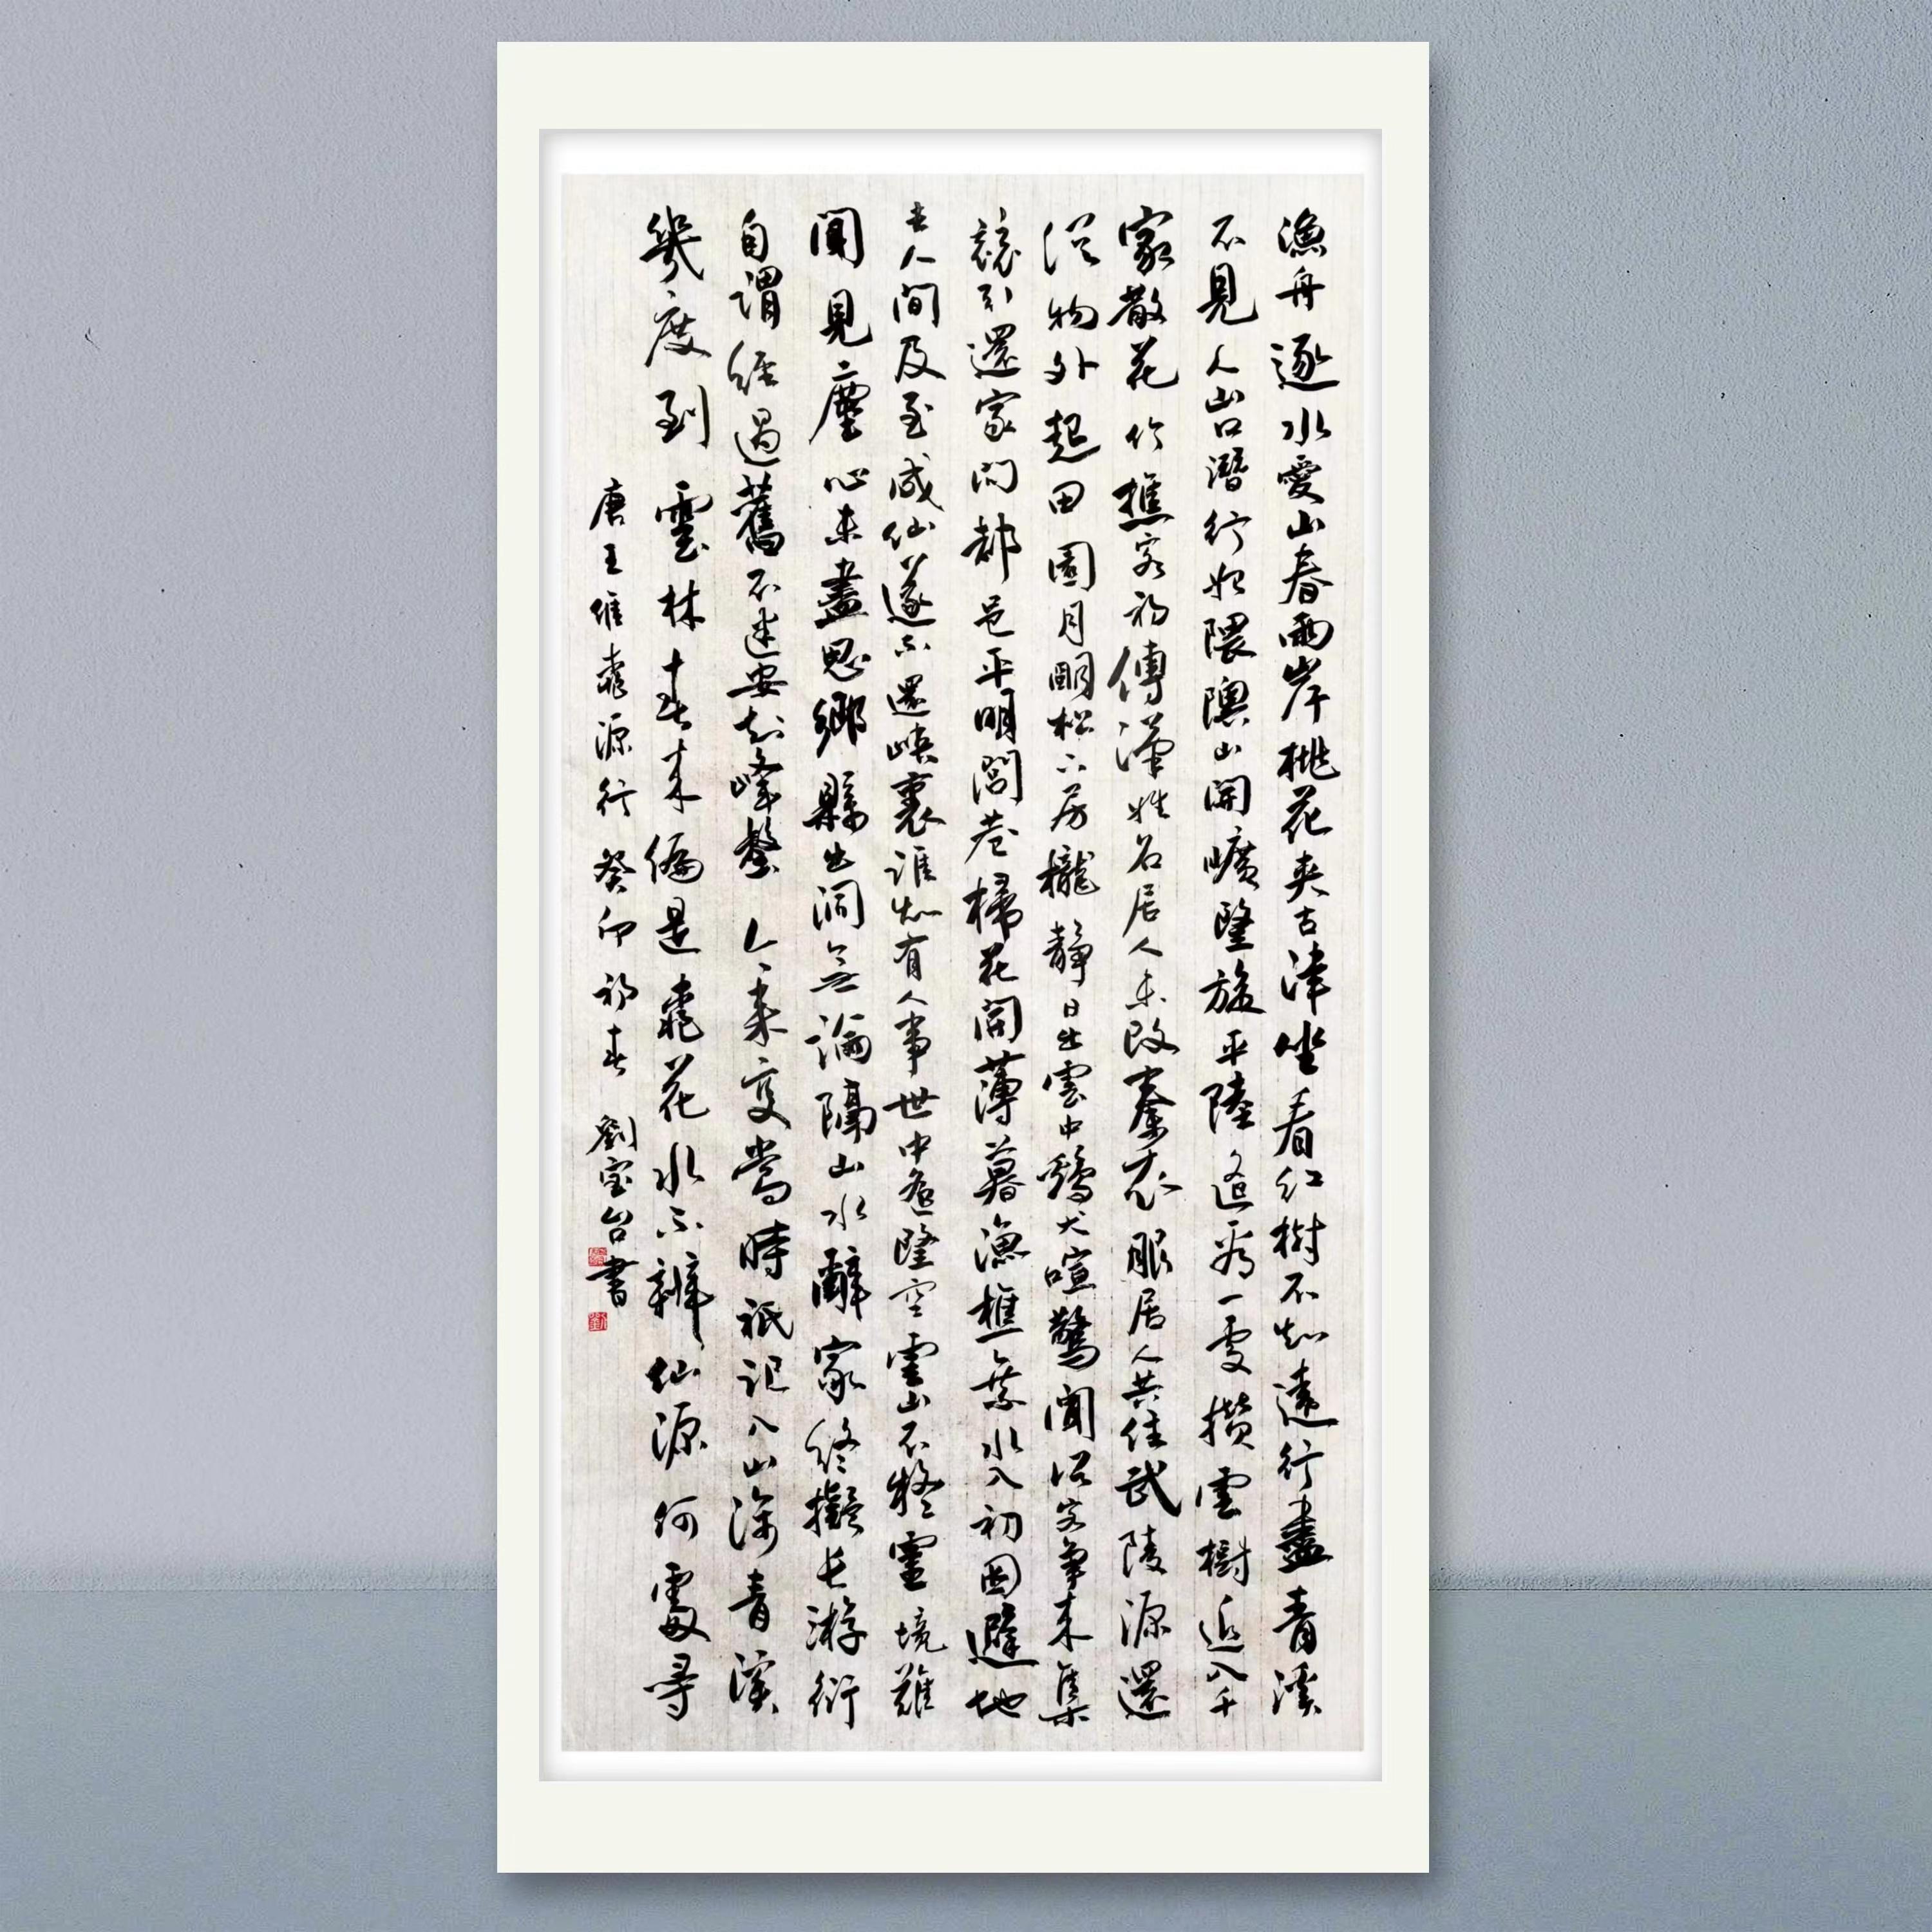 漁舟逐水愛山春兩岸桃花夾古津坐看紅樹不知遠行盡青溪
不見人山口潛行始隈隩山開曠望旋平陸遙看一處攢雲樹近入千
家散花竹樵客初傳漢姓名居人未改秦衣服居人共住武陵源還
從物外起田園月明松下房櫳靜日出雲中雞犬喧驚聞俗客爭來集
競引還家問都邑平明閭巷掃花開薄暮漁樵乘水入初因避地
去人間及至成仙遂不還峽裏誰知有人事世中遙望空雲山不疑靈境難
聞見塵心未盡思鄉縣出洞無論隔山水辭家終擬長游衍
自謂經過舊不迷安知峰壑今來變當時祇記入山深青溪
幾度到雲林春來徧是桃花水不辨仙源何處尋
唐王維桃源行癸卯初春劉宝台書